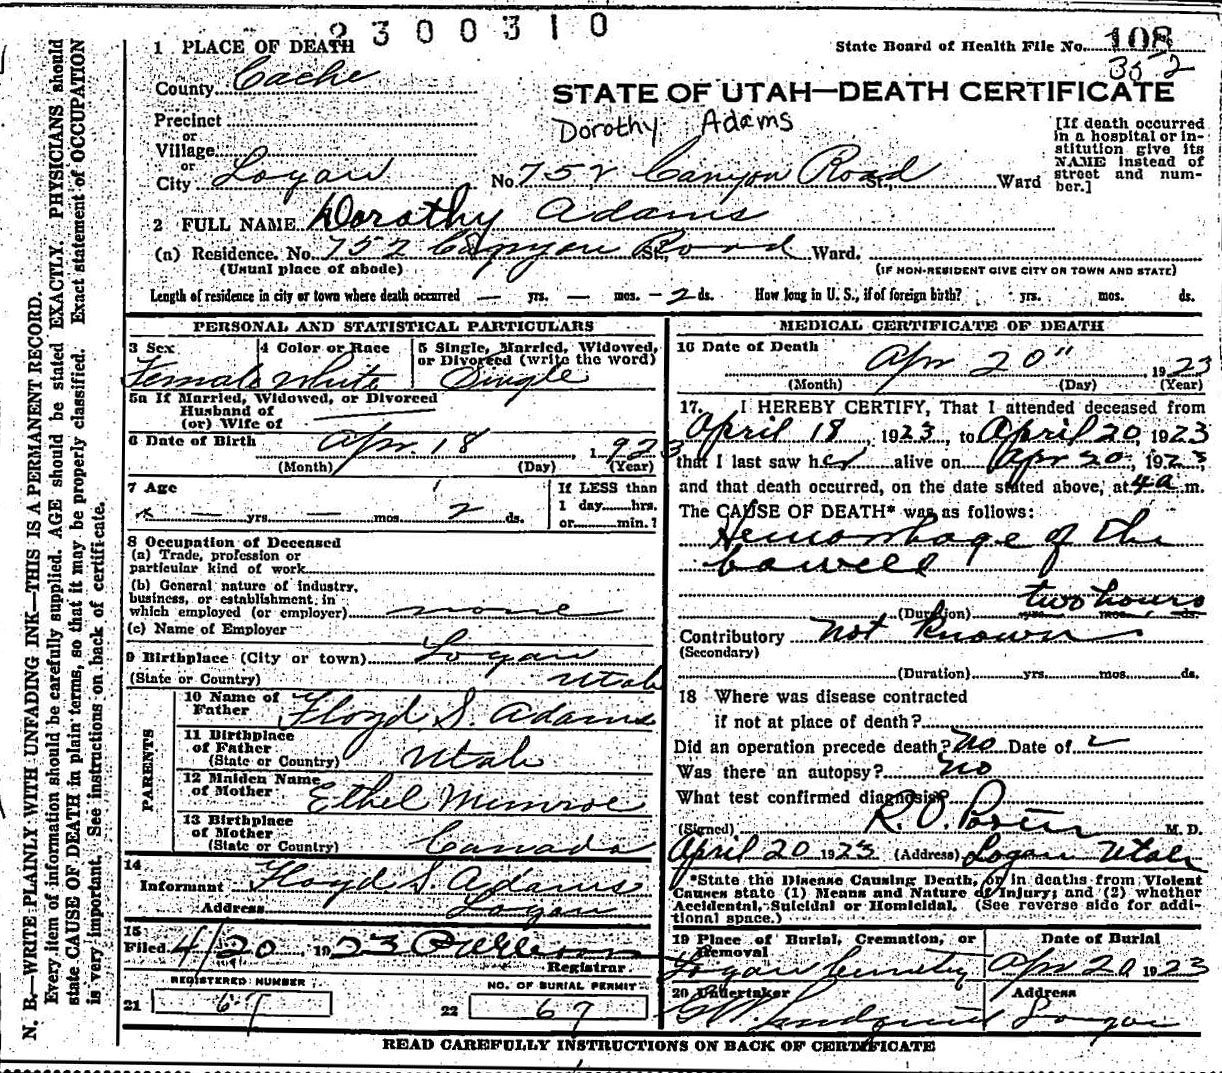 2300310
1 PLACE OF DEATH
State Board of Health File No. 108
352
County Cache
STATE OF UTAH—DEATH CERTIFICATE
Dorothy Adams
Precinct
or
Village
or
City Logan
No. 752 Canyon Road St., Ward
[If death occurred
in a hospital or in-
stitution give its
NAME instead of
street and num-
ber.]
2 FULL NAME Dorothy Adams
(a) Residence. No. 752 Canyon Road St., Ward.
(Usual place of abode)
(IF NON-RESIDENT GIVE CITY OR TOWN AND STATE)
Length of residence in city or town where death occurred — yrs. — mos. — 2 ds. How long in U. S., if of foreign birth? yrs. mos. ds.
PERSONAL AND STATISTICAL PARTICULARS
3 Sex
Female
4 Color or Race
White
5 Single, Married, Widowed,
or Divorced (write the word)
Single
5a If Married, Widowed, or Divorced
Husband of
(or) Wife of
6 Date of Birth Apr. 18, 1923
(Month) (Day) (Year)
7 Age
— yrs. — mos. 2 ds.
If LESS than
1 day....hrs.
or....min.?
8 Occupation of Deceased
(a) Trade, profession or
particular kind of work
(b) General nature of industry,
business, or establishment in
which employed (or employer) none
(c) Name of Employer
9 Birthplace (City or town) Logan
(State or Country) Utah
PARENTS
10 Name of
Father Floyd S. Adams
11 Birthplace
of Father
(State or Country) Utah
12 Maiden Name
of Mother Ethel Munroe
13 Birthplace
of Mother
(State or Country) Canada
14
Informant Floyd S. Adams
Address Logan
15
Filed 4/20, 1923
Registrar.
REGISTERED NUMBER
21 67
NO. OF BURIAL PERMIT
22 67
MEDICAL CERTIFICATE OF DEATH
16 Date of Death
Apr 20" 1923
(Month) (Day) (Year)
17. I HEREBY CERTIFY, That I attended deceased from
April 18, 1923, to April 20, 1923
that I last saw her alive on Apr 20, 1923,
and that death occurred, on the date stated above, at 4 a. m.
The CAUSE OF DEATH* was as follows:
Hemorrhage of the
bowell
two hours
(Duration) yrs. mos. ds.
Contributory Not Known
(Secondary)
(Duration) yrs. mos. ds.
18 Where was disease contracted
if not at place of death?
Did an operation precede death? No Date of
Was there an autopsy? No
What test confirmed diagnosis?
(Signed) R. O. Porter M. D.
April 20 1923 (Address) Logan Utah
*State the Disease Causing Death, or in deaths from Violent
Causes state (1) Means and Nature of Injury; and (2) whether
Accidental, Suicidal or Homicidal. (See reverse side for addi-
tional space.)
19 Place of Burial, Cremation, or
Removal
Logan Cemetery
Date of Burial
Apr 20 1923
20 Undertaker
Lindquist
Address
Logan
READ CAREFULLY INSTRUCTIONS ON BACK OF CERTIFICATE
N. B.—WRITE PLAINLY WITH UNFADING INK—THIS IS A PERMANENT RECORD.
Every item of information should be carefully supplied. AGE should be stated EXACTLY. PHYSICIANS should
state CAUSE OF DEATH in plain terms, so that it may be properly classified. Exact statement of OCCUPATION
is very important. See instructions on back of certificate.